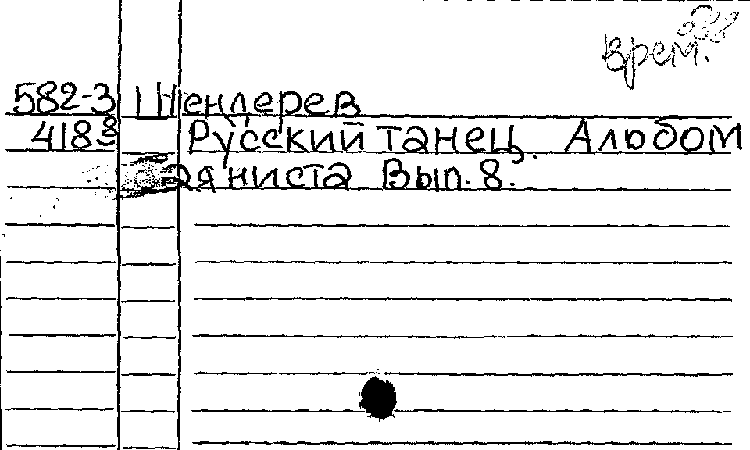 врем.
582-3 Шендерев
4183 Русский танец. Альбом
баяниста Вып. 8.